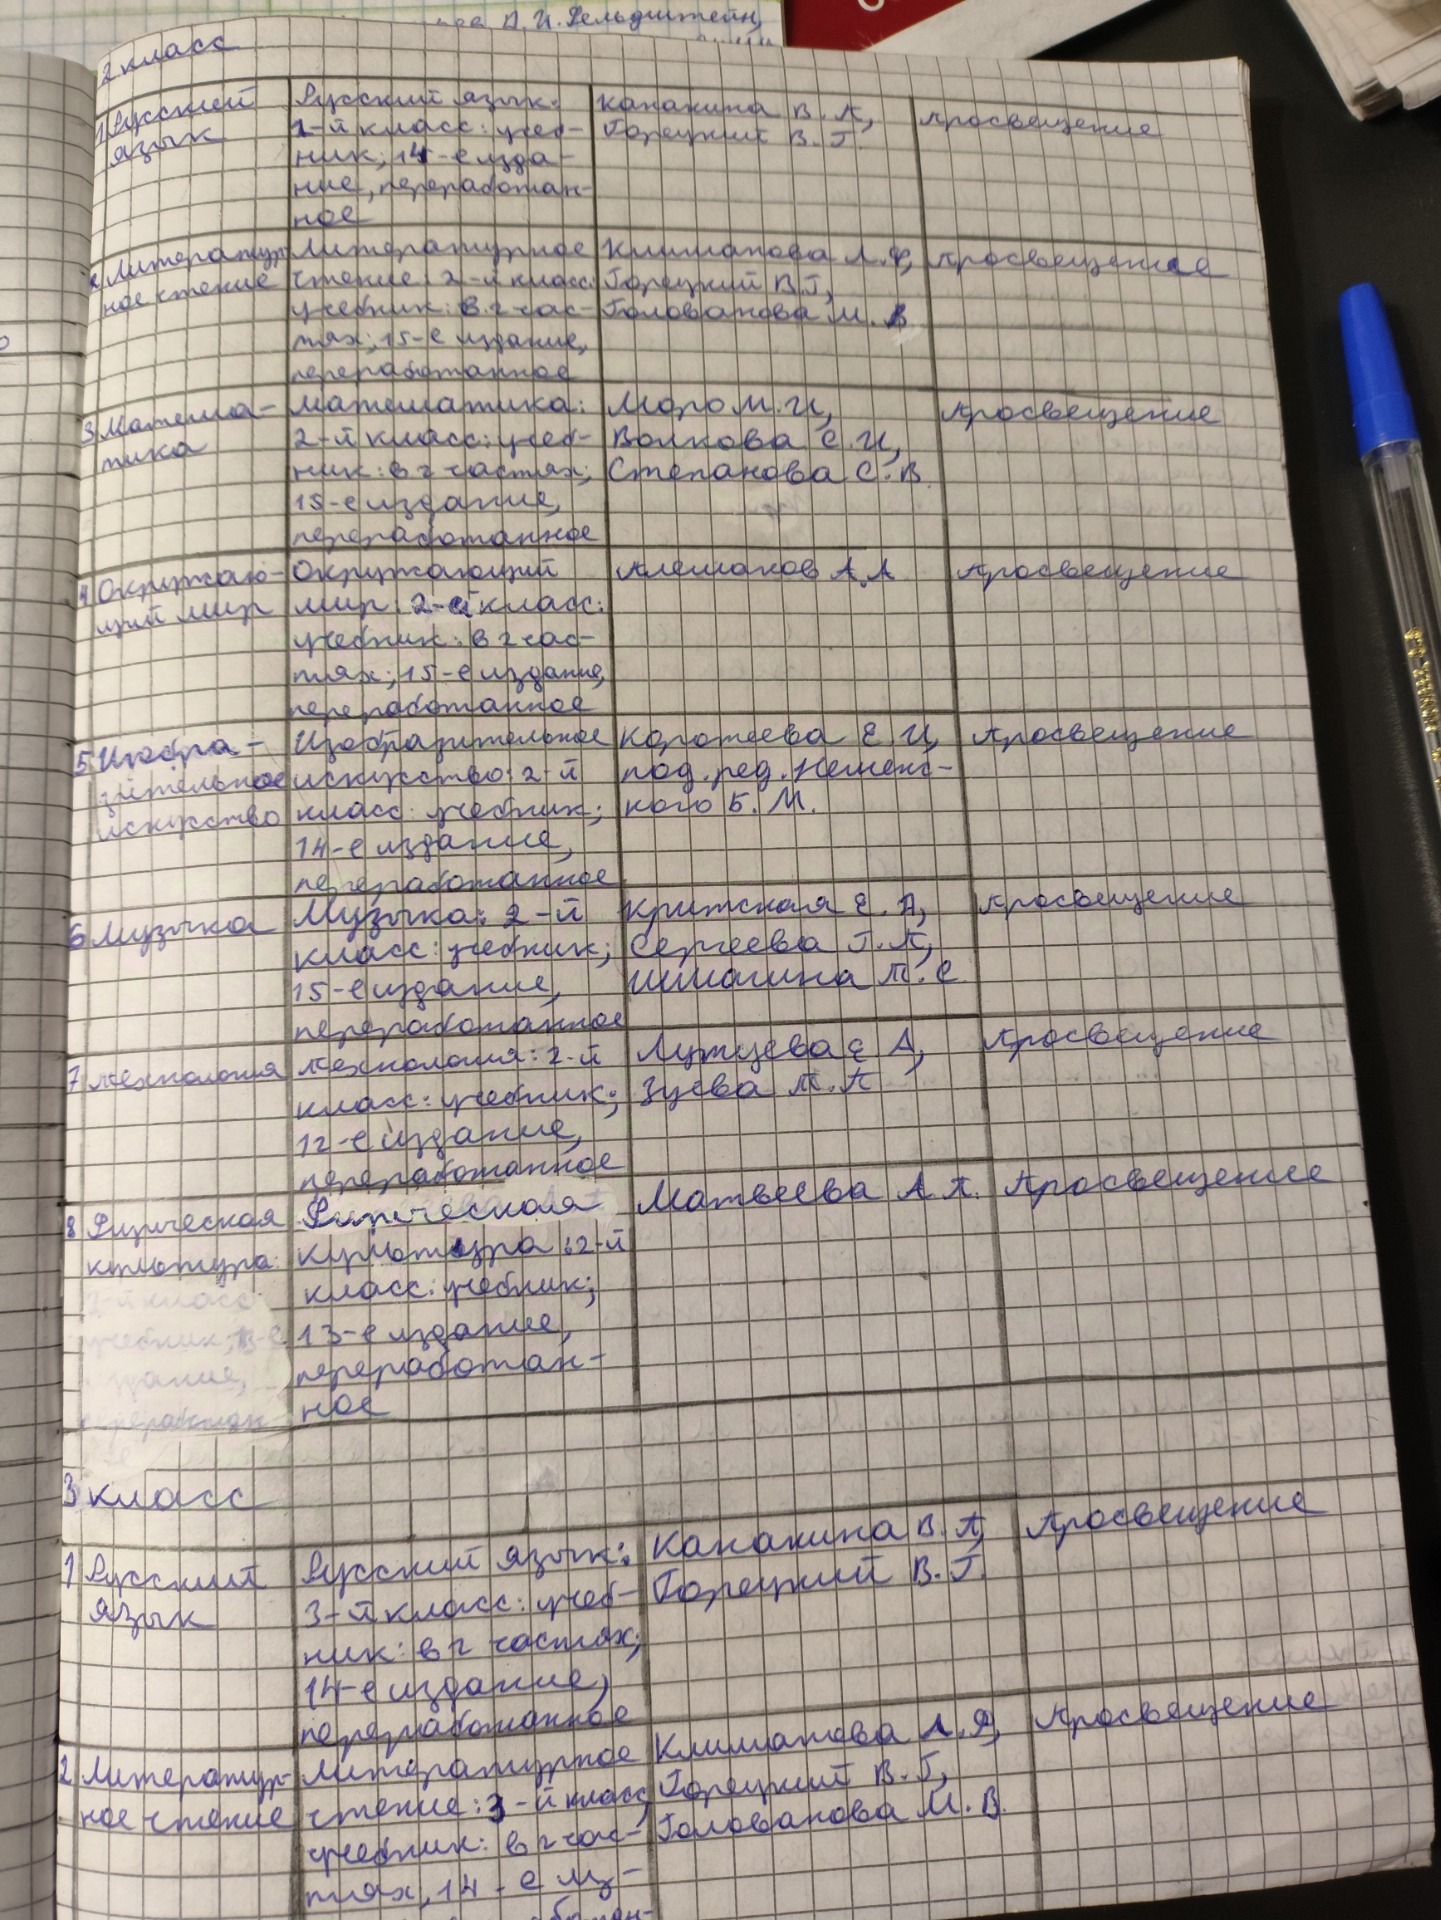 В.И. Фельдштейн,
2 класс
1 Русский язык
Русский язык:
2-й класс: учеб-
ник; 14-е изда-
ние, переработан-
ное
Канакина В.П,
Горецкий В.Г.
Просвещение
2 Литератур
ное чтение
Литературное
чтение: 2-й класс:
учебник: в 2 час-
тях; 15-е издание,
переработанное
Климанова Л.Ф,
Горецкий В.Г,
Голованова М.В
Просвещение
3 Матема-
тика
Математика:
2-й класс: учеб-
ник: в 2 частях;
15-е издание,
переработанное
Моро М.И,
Волкова С.И,
Степанова С.В
Просвещение
4 Окружаю-
щий мир
Окружающий
мир: 2-й класс:
учебник: в 2 час-
тях; 15-е издание,
переработанное
Плешаков А.А
Просвещение
5 Изобра-
зительное
искусство
Изобразительное
искусство: 2-й
класс: учебник;
14-е издание,
переработанное
Коротеева Е.И,
под. ред. Неменс-
кого Б.М.
Просвещение
6 Музыка
Музыка: 2-й
класс: учебник;
15-е издание,
переработанное
Критская Е.Д,
Сергеева Г.П,
Шмагина Т.С
Просвещение
7 Технология
Технология: 2-й
класс: учебник;
12-е издание,
переработанное
Лутцева Е А,
Зуева Т.П
Просвещение
8 Физическая
культура:
2-й класс:
учебник; 13-е
здание,
Физическая
культура: 2-й
класс: учебник;
13-е издание,
переработан-
ное
Матвеева А П.
Просвещение
3 класс
1 Русский
язык
Русский язык:
3-й класс: учеб-
ник: в 2 частях;
14-е издание,
переработанное
Канакина В.П,
Горецкий В.Г.
Просвещение
2 Литератур-
ное чтение
Литературное
чтение: 3-й класс,
учебник: в 2 час-
тях, 14-е из-
Климанова Л.Ф,
Горецкий В.Г,
Голованова М.В.
Просвещение